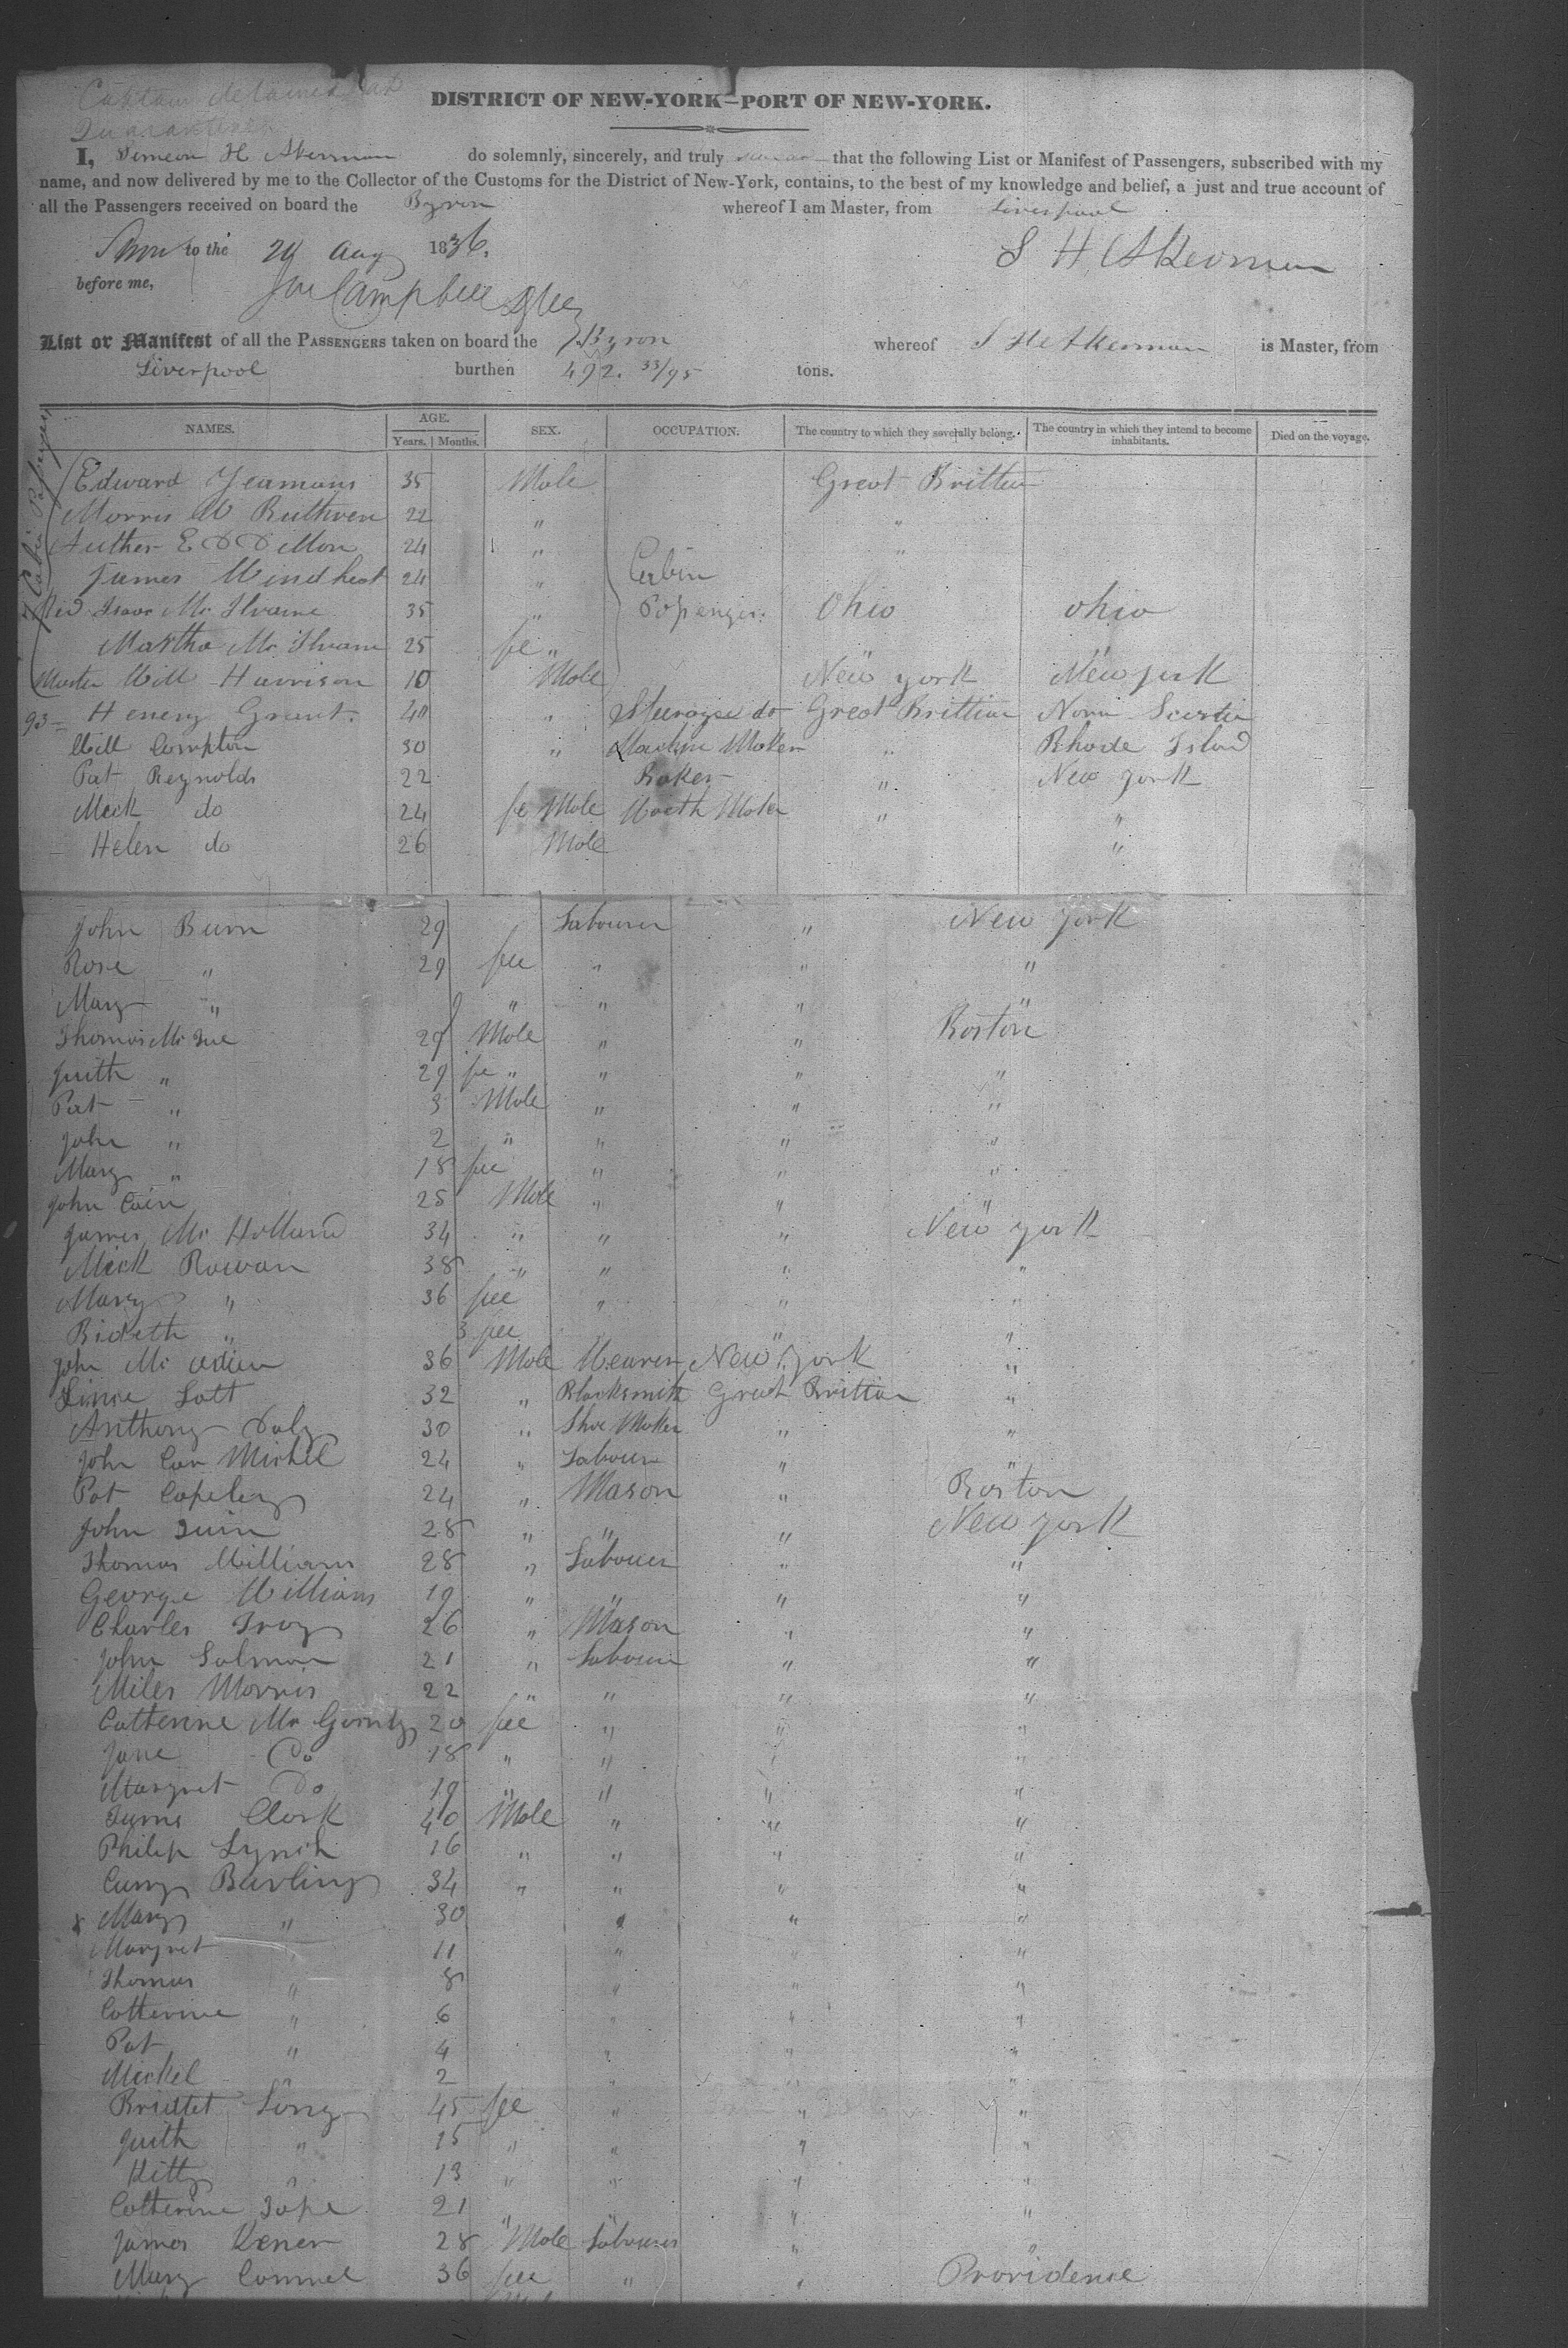 Captain detained at
Quarantine
DISTRICT OF NEW-YORK—PORT OF NEW-YORK.
I, Simeon H Akerman do solemnly, sincerely, and truly swear that the following List or Manifest of Passengers, subscribed with my
name, and now delivered by me to the Collector of the Customs for the District of New-York, contains, to the best of my knowledge and belief, a just and true account of
all the Passengers received on board the Byron whereof I am Master, from Liverpool
Sworn to the 24 Aug 1836. S H Akerman
before me, Campbell
List or Manifest of all the PASSENGERS taken on board the Byron whereof S H Akerman is Master, from
Liverpool burthen 492. 33/95 tons.
NAMES. AGE. Years. Months. SEX. OCCUPATION. The country to which they severally belong. The country in which they intend to become inhabitants. Died on the voyage.
7 Cabin Pasengers
Edward Yeamans 35 Male Great Brittian
Morris W Ruthven 22 " "
Auther E D Dillon 24 " "
James Windheat 24 " Cabin
Rid Isaac Mc Ilvaine 35 " Pasenger. Ohio Ohio
Martha Mc Ilvain 25 fe " " "
Master Will Harrison 10 Male New york New york
93 Henery Grant. 40 " Steerage do Great Brittian Nova Scortia
Will Compton 30 " Machine Maker " Rhode Island
Pat Reynolds 22 Baker " New york
Mick do 24 fe Male " "
Helen do 26 Male "
John Burn 29 Labourer " New york
Rose " 29 fee " " "
Mary " " " " "
Thomas Mc 29 Male " " Boston
Juith " 29 fe " " " "
Pat " 3 Male " " "
John " 2 " " " "
Mary " 18 fee " " "
John Cain 25 Male " " "
James Mc Holland 34 " " " New york
Mick Rowan 38 " " " "
Mary " 36 fee " " "
Brideth " 3 fee " "
John Mc 36 Male Weaver New york "
Lott 32 " Blacksmith Great Brittian "
Anthony Daly 30 " Shoe Maker " "
John Car Michel 24 " Labourer " "
Pat Copeley 24 " Mason " Boston
John Quin 28 " " " New york
Thomas William 28 " Labourer " "
George William 19 " " " "
Charles Troy 26 " Mason " "
John Salmon 21 " Labourer " "
Miles Morris 22 " " " "
Catherine Mc 20 fee " " "
Jane Do 18 " " " "
Margret Do 19 " " " "
James Clark 40 Male " " "
Philip Lynch 16 " " " "
34 " " " "
x Mary " 30 " " "
Margret 11 " " "
Thomas " 8 " " "
Catherine " 6 " " "
Pat " 4 " " "
Mickel " 2 " " "
Bridtet Long 45 fee " " "
Juith " 15 " " " "
Kitty " 13 " " " "
Catherine 21 " " " "
James Kener 28 Male Labourer " "
Mary Connel 36 fee " " Providence